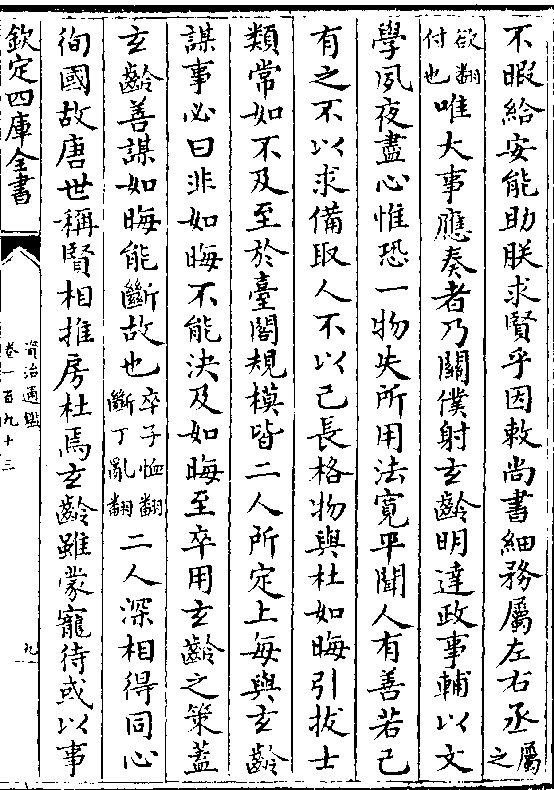 不暇給安能助朕求賢乎因敕尚書細務屬左右丞屬之
欲翻付也唯大事應奏者乃關僕射玄齡明達政事輔以文
學夙夜盡心惟恐一物失所用法寬平聞人有善若己
有之不以求備取人不以己長格物與杜如晦引拔士
類常如不及至於臺閣規模皆二人所定上每與玄齡
謀事必曰非如晦不能決及如晦至卒用玄齡之策蓋
玄齡善謀如晦能斷故也卒子恤翻斷丁亂翻二人深相得同心
徇國故唐世稱賢相推房杜焉玄齡雖蒙寵待或以事
欽定四庫全書
資治通鑑
卷一百九十三
九